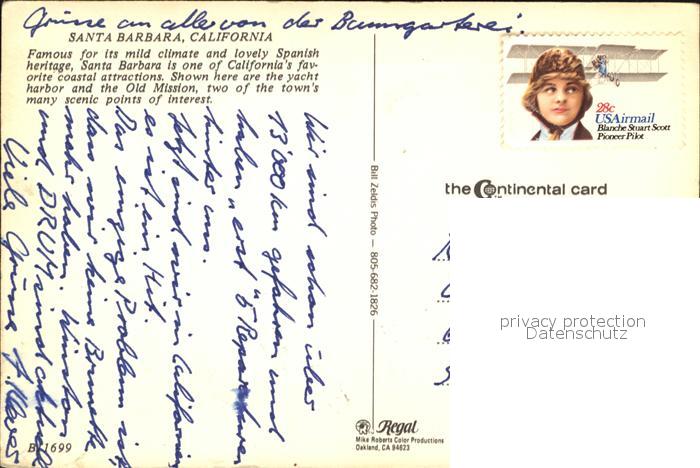 Grüsse an alle von der Baumgarterei.
SANTA BARBARA, CALIFORNIA
Famous for its mild climate and lovely Spanish
heritage, Santa Barbara is one of California's fav-
orite coastal attractions. Shown here are the yacht
harbor and the Old Mission, two of the town's
many scenic points of interest.
28c
USAirmail
Blanche Stuart Scott
Pioneer Pilot
the Continental card
Wir sind schon über
13 000 km gefahren und
haben "erst" 5 Reparaturen
hinter uns.
Jetzt sind wir in Californien
es ist ein Hit.
Das einzige Problem ist
dass wir keine Brunette
mehr haben. Winston
und DRUM sind
Viele Grüsse
Bill Zeldis Photo — 805-682-1826
privacy protection
Datenschutz
Regal
Mike Roberts Color Productions
Oakland, CA 94623
B11699